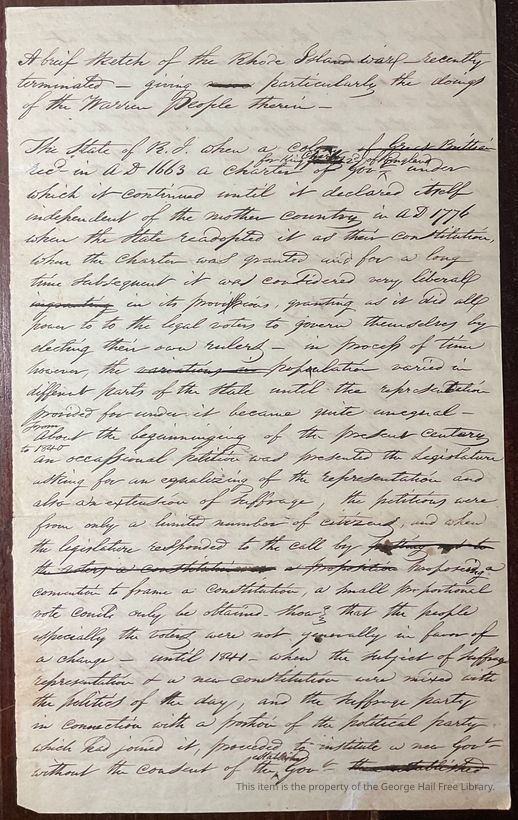 A brief sketch of the Rhode Island war recently
terminated – giving particularly the doings
of the Warren People therein –
The State of R.I. when a colony of Great Britian
rec'd in A D 1663 a Charter of Gov't under
for King Charles 2d of England
which it continued until it declared itself
independent of the mother country in A D 1776
when the State readopted it as their constitution,
when the Charter was granted and for a long
time subsequent it was considered very liberal
in its provissions, granting as it did all
power to to the legal voters to govern themselves by
electing their own rulers – in process of time
however, the variations in population varied in
different parts of the State until the representation
provided for under it became quite unequal –
From
About the beginninging of the present Century
to 1840
an occassional petition was presented the Legislature
asking for an equalizing of the representation and
also an extension of suffrage, the petitions were
from only a limited number of citizens, and when
the legislature responded to the call by putting out to
the voters a constitution a proposition proposing a
convention to frame a constitution, a small proportional
vote could only be obtained. showg that the people
especially the voters were not generally in favor of
a change – until 1841 – when the subject of suffrage
representation & a new constitution were mixed with
the politics of the day, and the suffrage party
in connection with a portion of the political party
which had joined it, proceeded to institute a new Gov't –
established
without the consent of the Gov't the established
This item is the property of the George Hail Free Library.